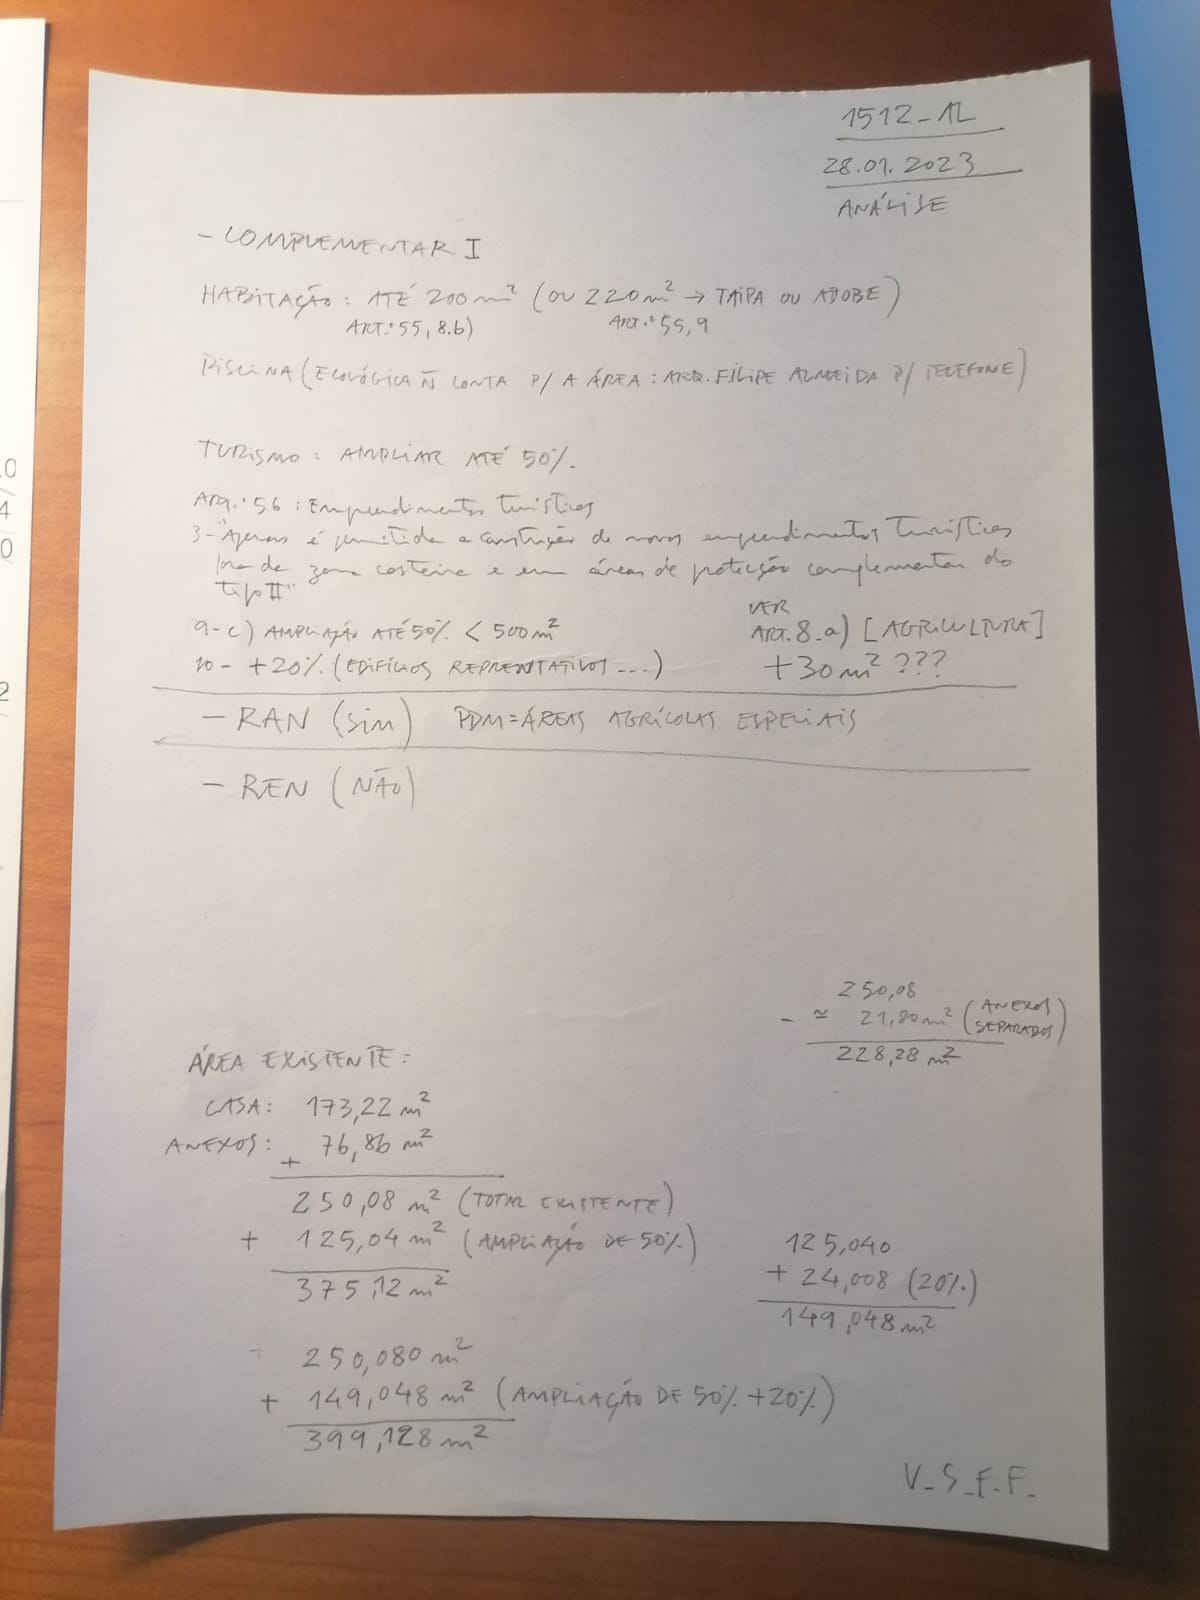 1512_AL
28.01.2023
ANÁLISE
- COMPLEMENTAR I
HABITAÇÃO: ATÉ 200 m² (OU 220 m² → TAIPA OU ADOBE)
ART.º 55, 8.b) ART.º 55, 9
PISCINA (ECOLÓGICA Ñ CONTA P/ A ÁREA: ARQ. FILIPE ALMEIDA P/ TELEFONE)
TURISMO: AMPLIAR ATÉ 50%.
ART.º 56: Empreendimentos turísticos
3- "Apenas é permitida a construção de novos empreendimentos turísticos
fora da zona costeira e em áreas de protecção complementar do
tipo II"
9-c) AMPLIAÇÃO ATÉ 50% < 500 m²
10- +20% (EDIFÍCIOS REPRESENTATIVOS ...)
VER
ART. 8.a) [AGRICULTURA]
+30 m² ???
- RAN (SIM) PDM = ÁREAS AGRÍCOLAS ESPECIAIS
- REN (NÃO)
250,08
- ≃ 21,80 m² (ANEXOS SEPARADOS)
228,28 m²
ÁREA EXISTENTE:
CASA: 173,22 m²
ANEXOS: + 76,86 m²
250,08 m² (TOTAL EXISTENTE)
+ 125,04 m² (AMPLIAÇÃO DE 50%)
375,12 m²
125,040
+ 24,008 (20%)
149,048 m²
+ 250,080 m²
+ 149,048 m² (AMPLIAÇÃO DE 50% +20%)
399,128 m²
V_S_F.F_